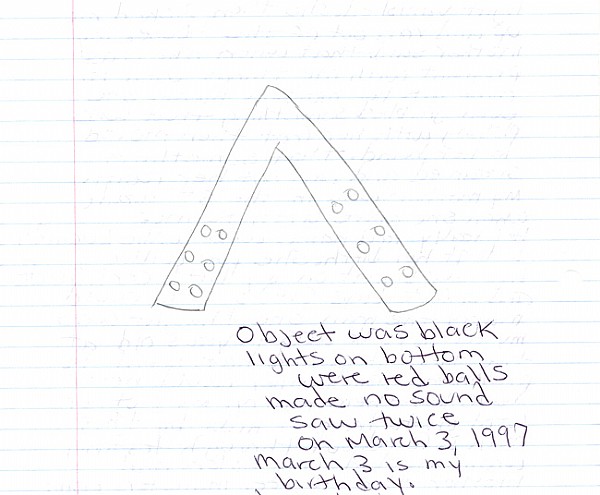 Object was black
lights on bottom
were red balls
made no sound
saw twice
on March 3, 1997
march 3 is my
birthday.